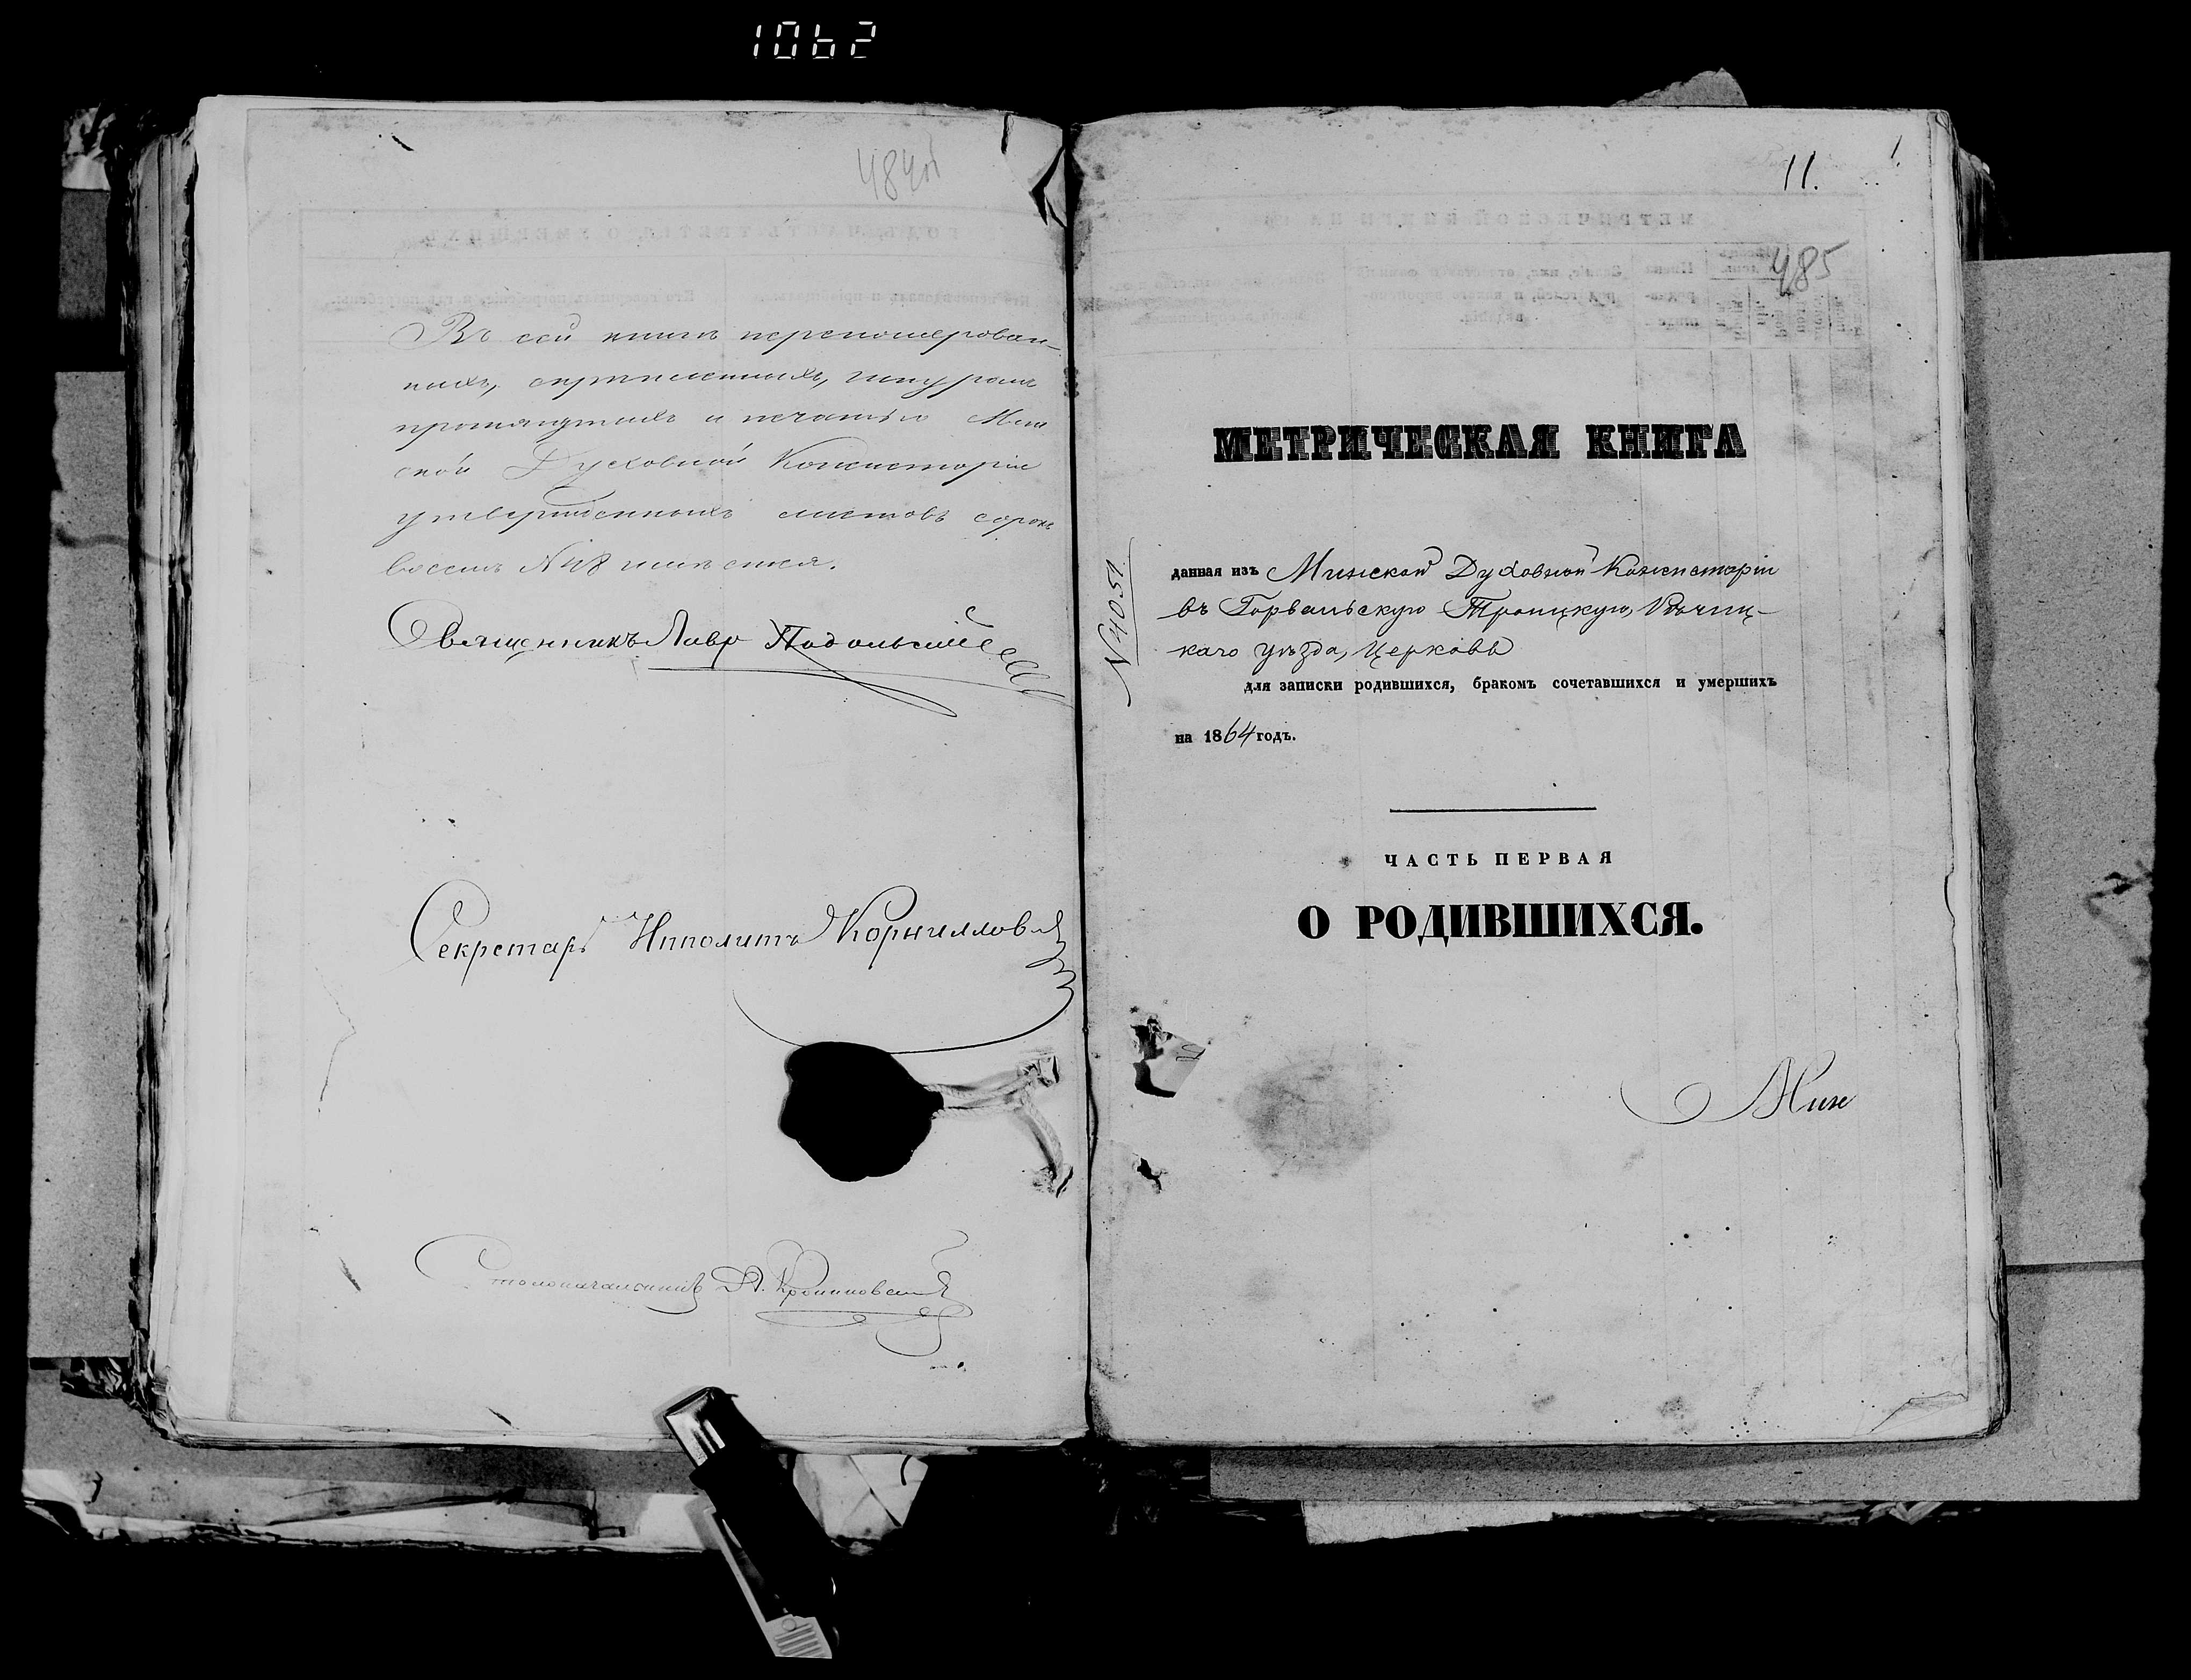 1062
484об
Въ сей книгѣ перенумерован-
ныхъ, скрѣпленныхъ, шнуромъ
протянутыхъ и печатью Мин
ской Духовной Консисторіи
утвержденныхъ листовъ сорокъ
восемь N 48 имѣется.
Священникъ Лавр Подольскій
Секретарь Ипполитъ Корнилловъ
Столоначальникъ
11.
1.
485
МЕТРИЧЕСКАЯ КНИГА
N 4051.
данная изъ Минской Духовной Консисторіи
въ Горвальскую Троицкую, Рѣчиц-
каго уѣзда, Церковь
для записки родившихся, бракомъ сочетавшихся и умершихъ
на 1864 годъ.
ЧАСТЬ ПЕРВАЯ
О РОДИВШИХСЯ.
Мин